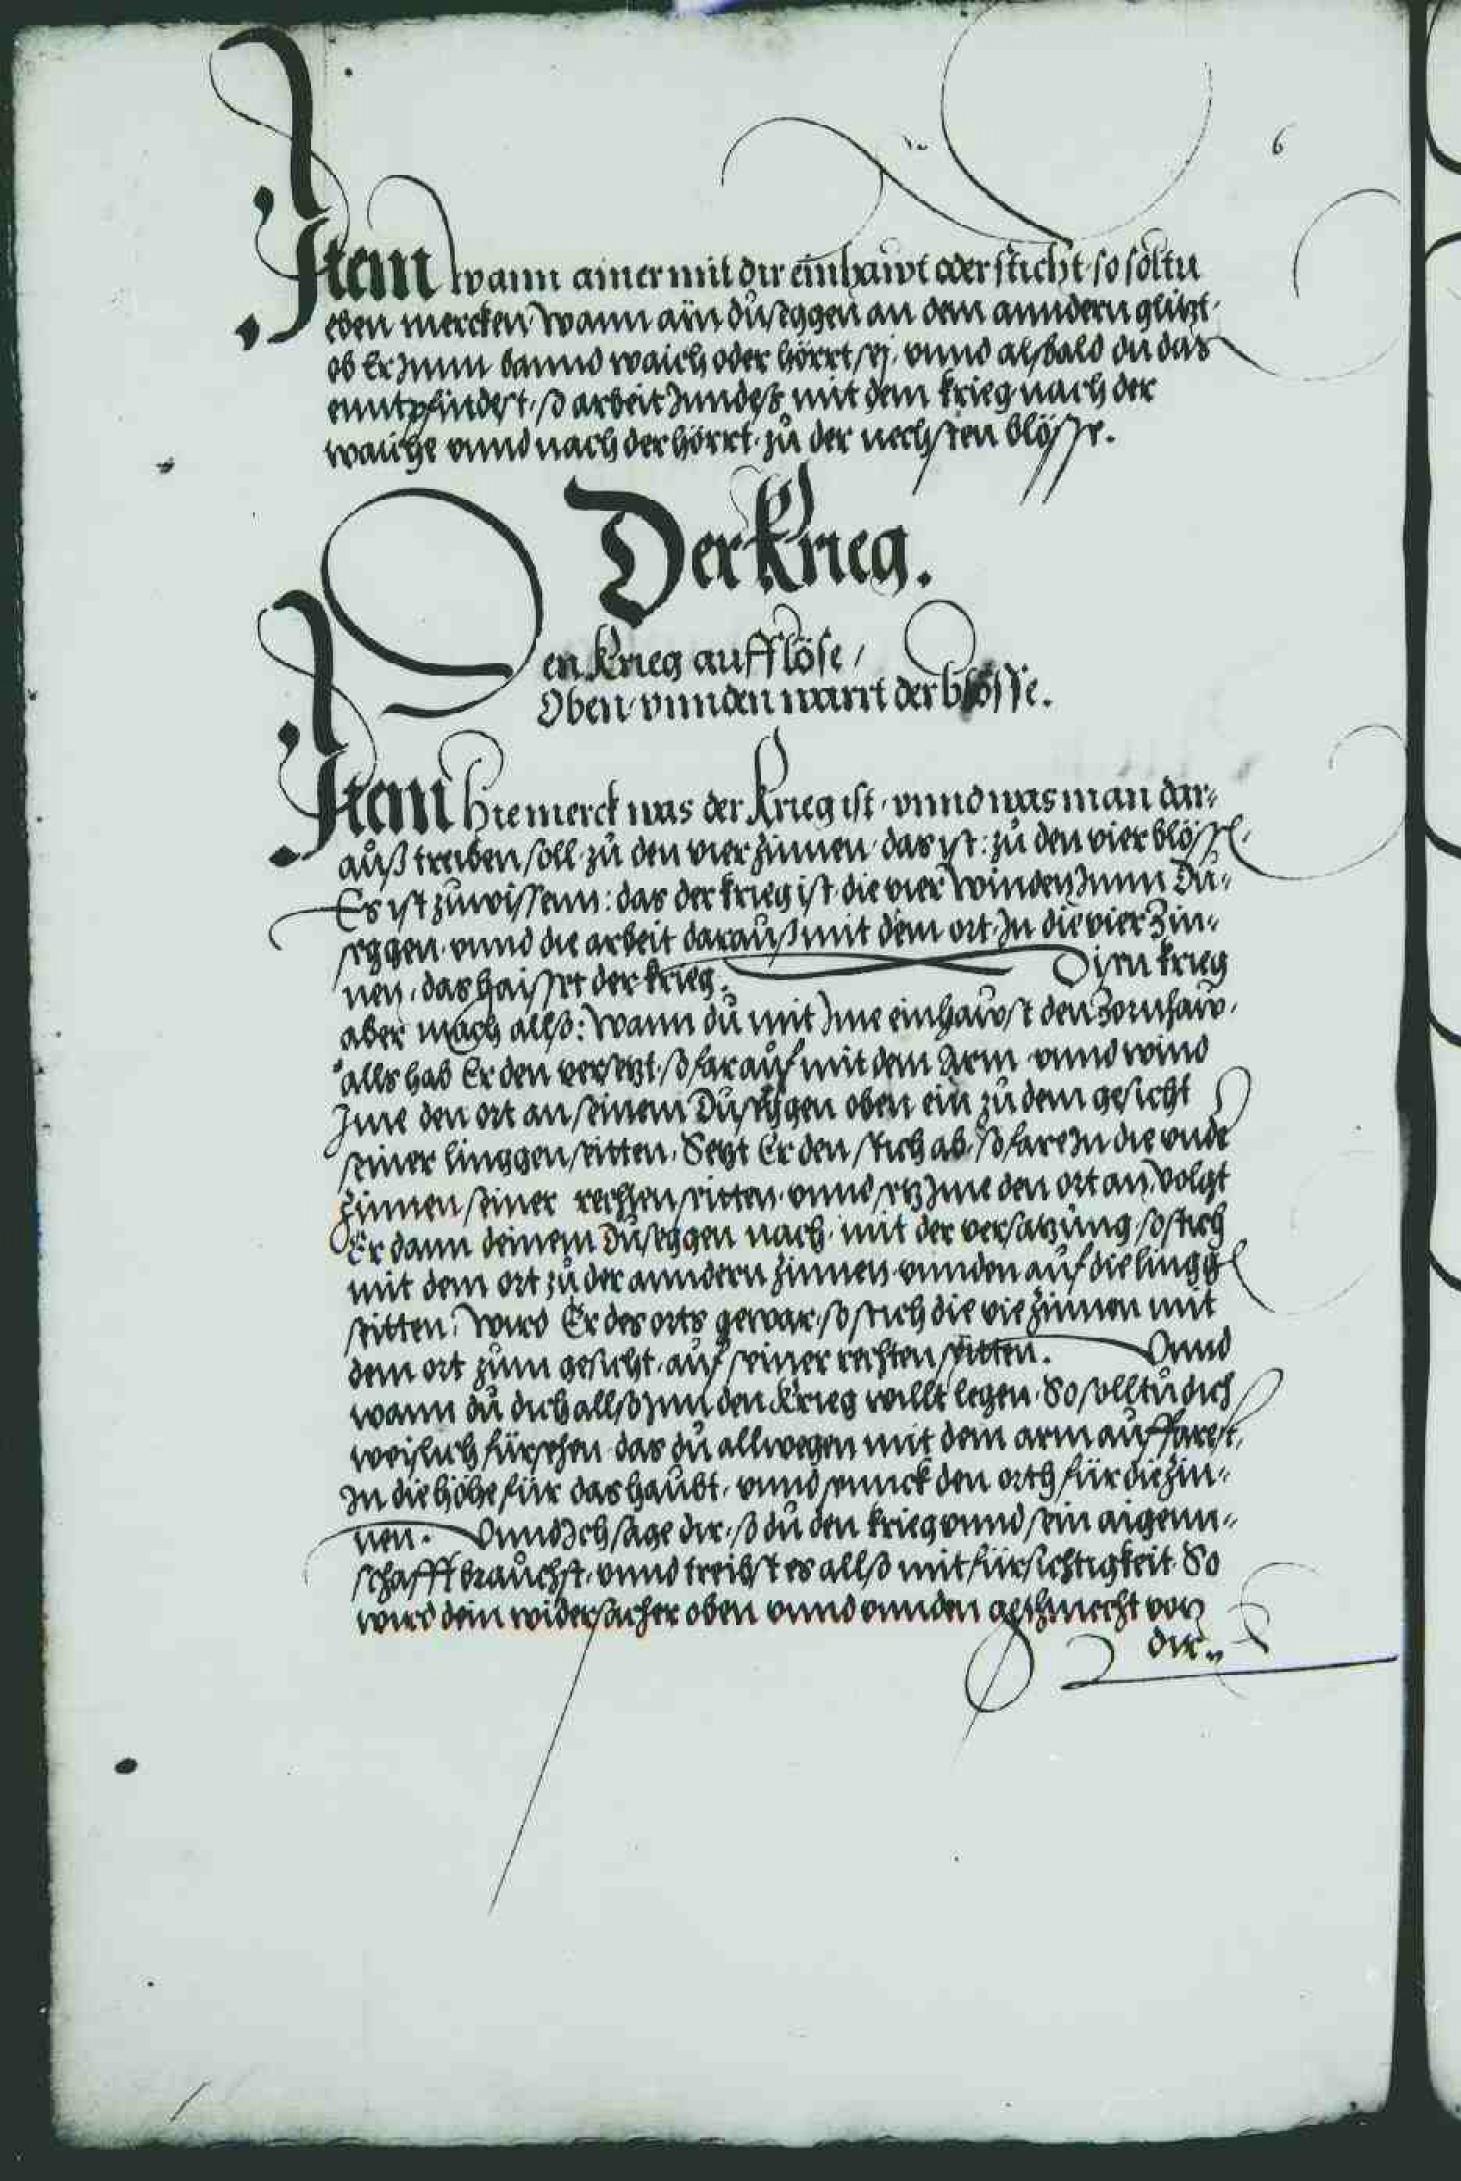 6
Item wann ainer mit dir einhawt oder sticht, so soltu
eben mercken wann ain duseggen an dem anndern glitzt,
ob Er Inn band waich oder hörrt sej, vnnd alsbald du das
enntpfindest, so arbeit Inndeß mit dem krieg nach der
waiche vnnd nach der hörrt, zu der nechsten blösse.
Der Krieg.
Den Krieg aufflöse /
Oben, vnnden warrt der blösse.
Item Hie merck was der Krieg ist, vnnd was man dar=
auß treiben soll, zu den vier zinnen, das ist: zu den vier blösse,
Es ist zuwissenn: das der krieg ist die vier winden Inn Du=
seggen, vnnd die arbeit darauß mit dem ort, In die vier zin=
nen, das haisset der krieg. Disen krieg
aber mach allß: Wann du mit Ime einhawst den Zornhaw,
alls bab Er den versetzt, so far auf mit dem Arm, vnnd wind
Ime den ort an seinem Duseggen oben ein zu dem gesicht
seiner linggen seitten, Setzt Er den stich ab, so fare In die vnde
zinnen seiner rechten seitten, vnnd setz Ime den ort an, volgt
Er dann deinem Duseggen nach, mit der versatzung, so stich
mit dem ort zu der anndern zinnen, vnnden auf die lingg
seitten, Wird Er des orts gewar, so stich die vie zinnen mit
dem ort zum gesicht, auf seiner rechten seitten. Vnnd
wann du dich allß Inn den Krieg willt legen, So solltu dich
weislich fürsehen, das du allwegen mit dem arm auffarest,
In die höhe für das haubt, vnnd den orth für die zin=
nen. Vnnd Ich sage dir, so du den krieg vnnd sein aigenn=
schafft brauchst, vnnd treibst es allß mit fürsichtigkeit, So
wird dein widersacher oben vnnd vnnden geschwecht von
dir.